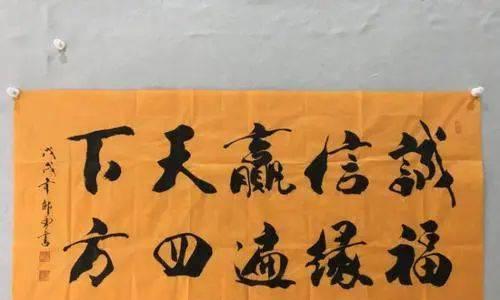 誠信贏天下
福緣遍四方
戊戌年書